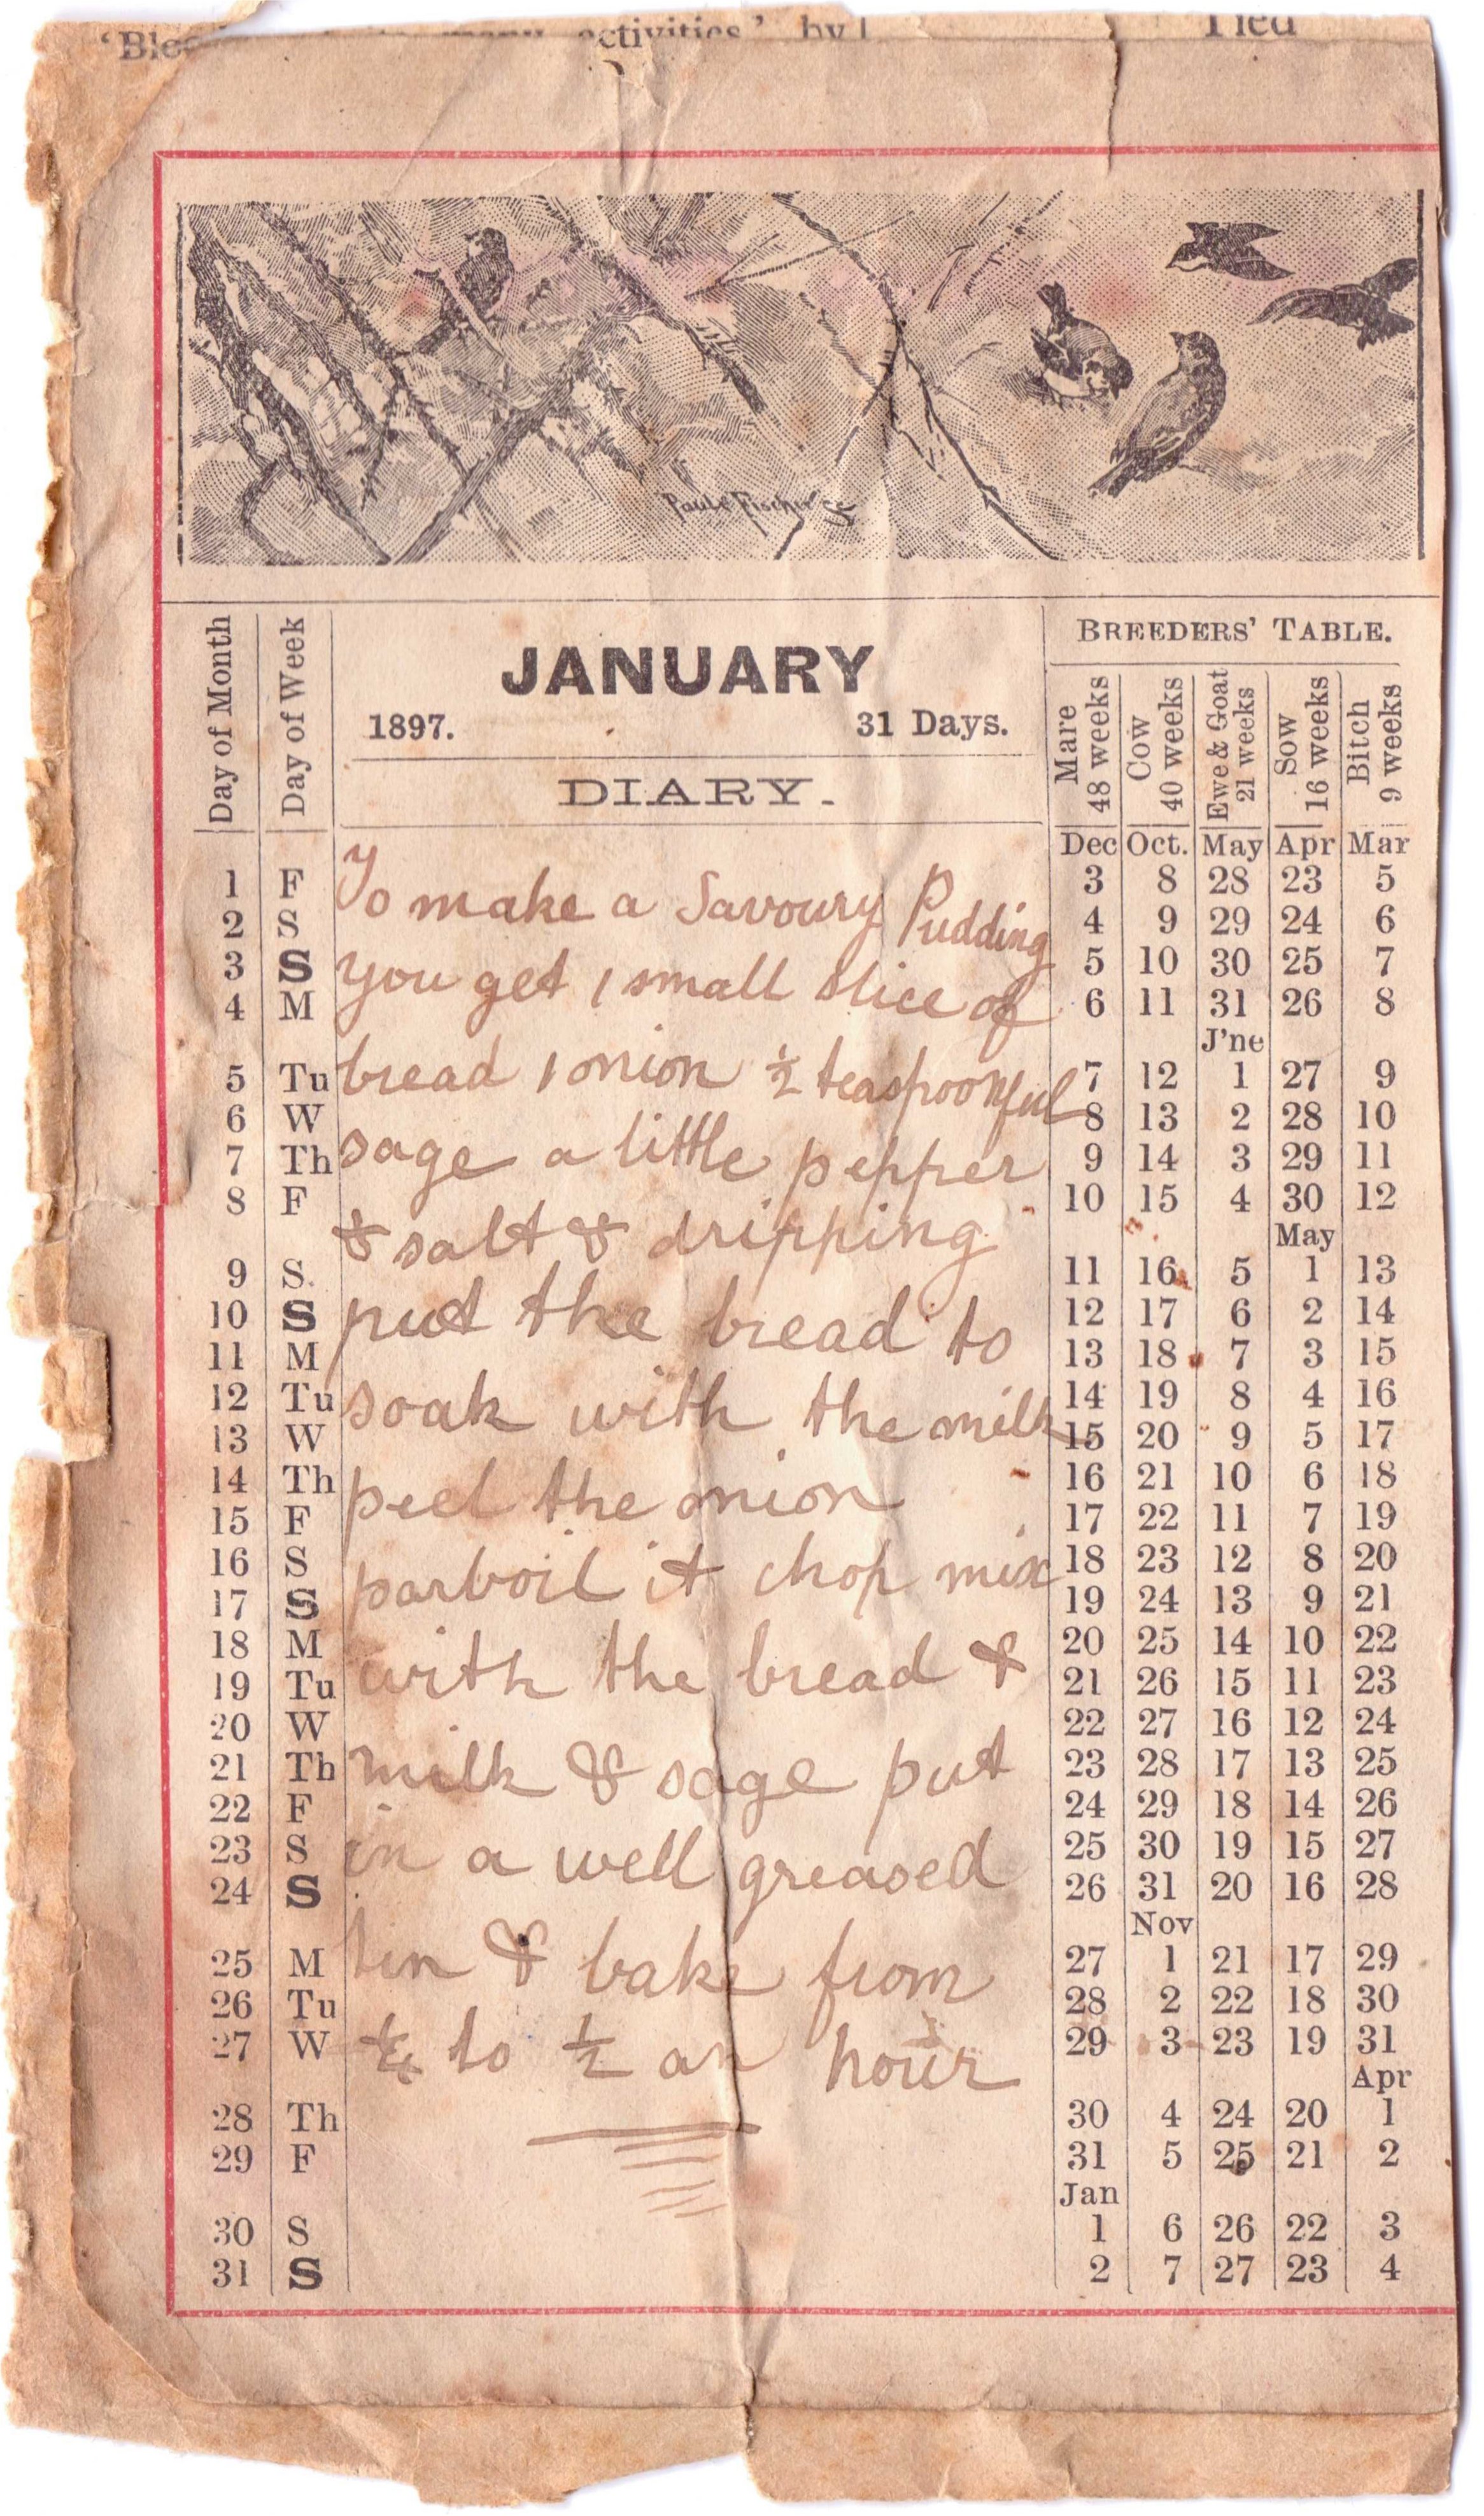 activities.' by
Tied
Paul Fischer
JANUARY
1897. 31 Days.
DIARY.
BREEDERS' TABLE.
Day of Month
Day of Week
Mare 48 weeks
Cow 40 weeks
Ewe & Goat 21 weeks
Sow 16 weeks
Bitch 9 weeks
Dec Oct. May Apr Mar
1 F 3 8 28 23 5
2 S 4 9 29 24 6
3 S 5 10 30 25 7
4 M 6 11 31 26 8
J'ne
5 Tu 7 12 1 27 9
6 W 8 13 2 28 10
7 Th 9 14 3 29 11
8 F 10 15 4 30 12
May
9 S. 11 16 5 1 13
10 S 12 17 6 2 14
11 M 13 18 7 3 15
12 Tu 14 19 8 4 16
13 W 15 20 9 5 17
14 Th 16 21 10 6 18
15 F 17 22 11 7 19
16 S 18 23 12 8 20
17 S 19 24 13 9 21
18 M 20 25 14 10 22
19 Tu 21 26 15 11 23
20 W 22 27 16 12 24
21 Th 23 28 17 13 25
22 F 24 29 18 14 26
23 S 25 30 19 15 27
24 S 26 31 20 16 28
Nov
25 M 27 1 21 17 29
26 Tu 28 2 22 18 30
27 W 29 3 23 19 31
Apr
28 Th 30 4 24 20 1
29 F 31 5 25 21 2
Jan
30 S 1 6 26 22 3
31 S 2 7 27 23 4
To make a Savoury Pudding
you get 1 small slice of
bread 1 onion ½ teaspoonful
sage a little pepper
& salt & dripping
put the bread to
soak with the milk
peel the onion
parboil it chop mix
with the bread &
milk & sage put
in a well greased
tin & bake from
¼ to ½ an hour